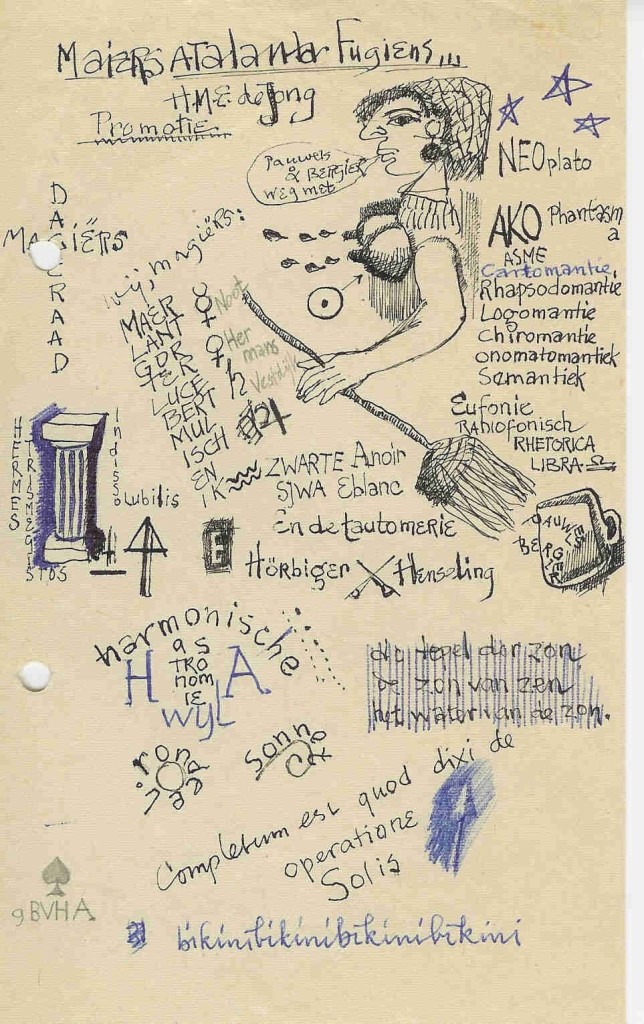 Maiers Atalanta Fugiens...
H.M.E. de Jong
Promotie
Pauwels
& Bergier
weg met
NEOplato
AKO Phantasm
a
ASME
Cartomantie
Rhapsodomantie
Logomantie
Chiromantie
onomatomantiek
Semantiek
Eufonie
RAdiofonisch
RHETORICA
LIBRA ♎
DAGERAAD
MAGIËRS
wij magiërs:
MAER
LANT
GOR
TER
LUCE
BERT
MUL
ISCH
EN
IK
☿ Noot
♀ Her
mans
♄ Vestdijk
♃
☉
HERMES
TRISMEGI
STOS
Indisso
lubilis
ZWARTE Anoir
SJWA Eblanc
En de tautomerie
E
Hörbiger Henseling
PAUWELS
BERGIER
harmonische
AS
TRO
NOM
IE
H A
WIJL
de tepel der zon
de zon van zen
het water van de zon.
Completum est quod dixi de
operatione
Solis
♠
9 BVHA
bikinibikinibikinibikini